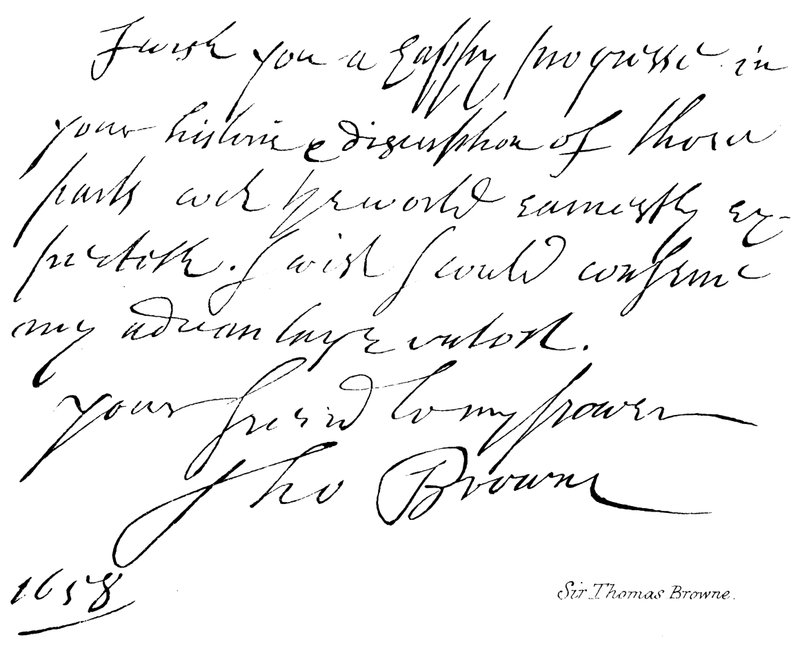 I wish you a happy progresse in
your historie & discription of those
parts wch the world earnestly ex-
pecteth. I wish I could
my
your friend to my power
Tho Browne
1658
Sir Thomas Browne.